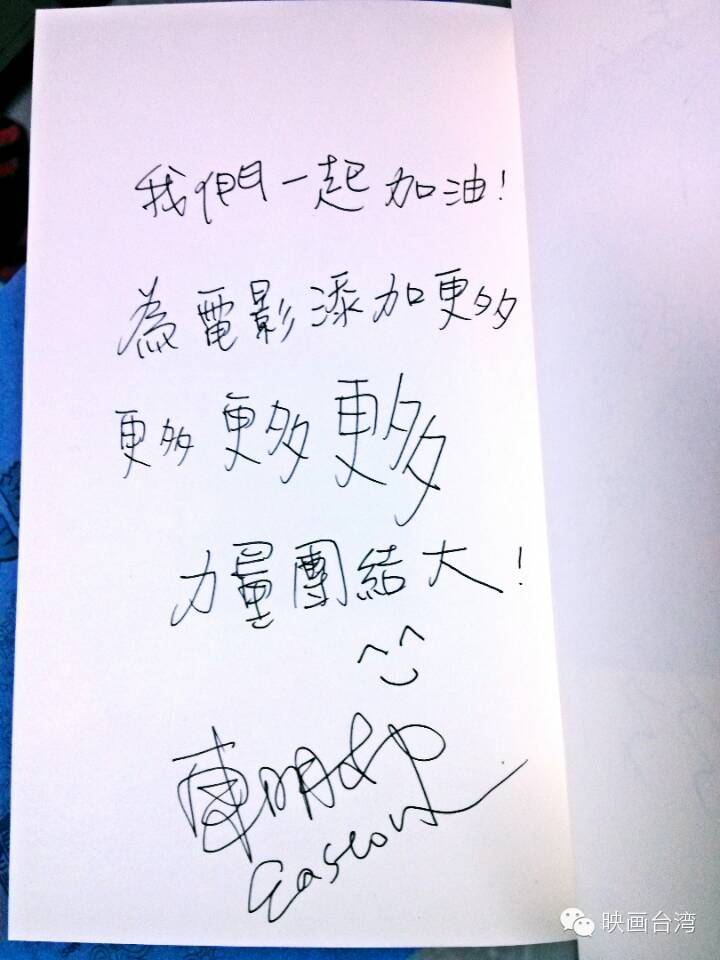 我們一起加油!
為電影添加更多
更多更多更多
力量團結大!
^^
東明相
Easton
映画台湾